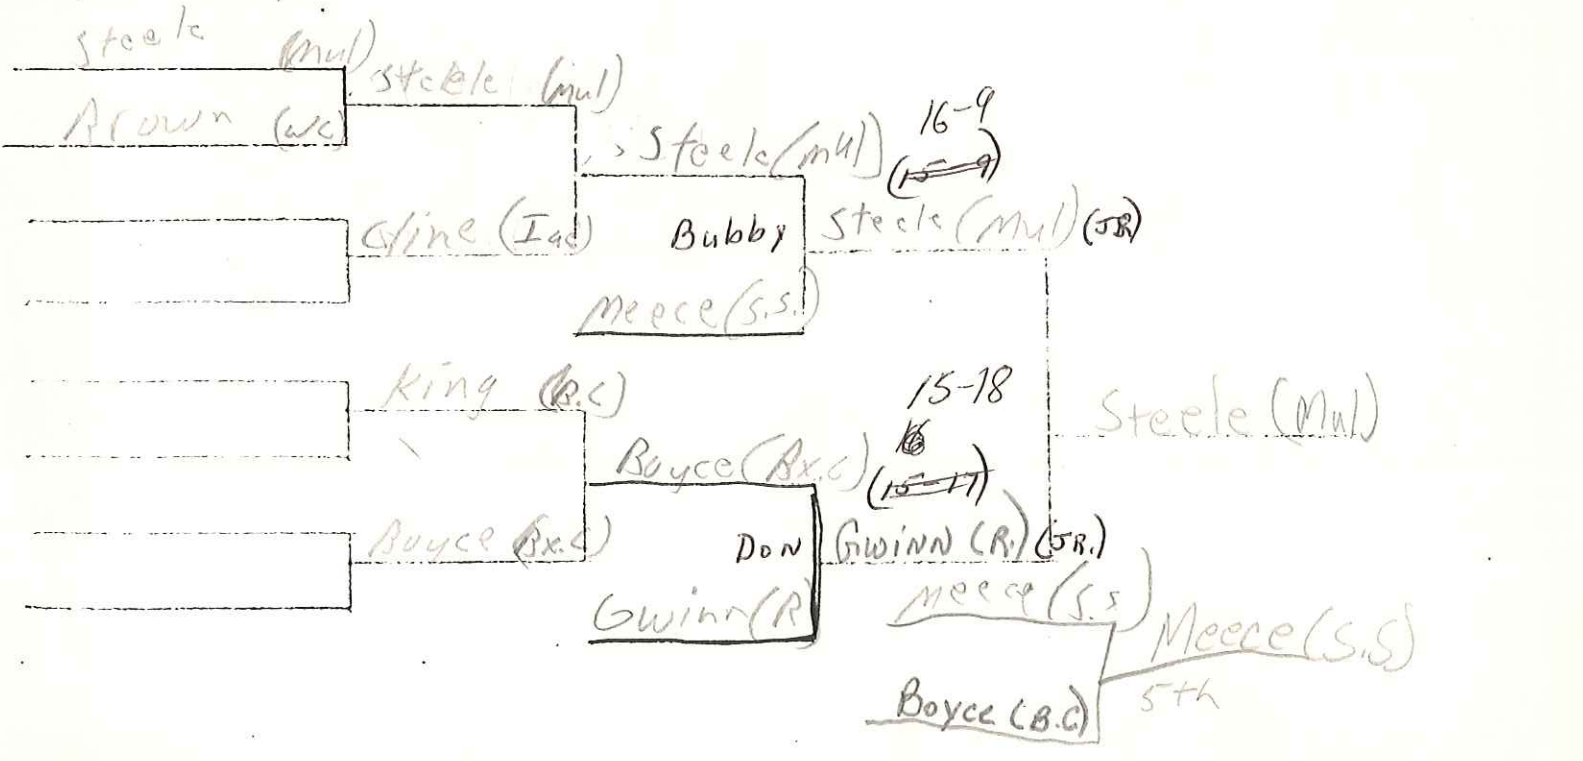 Steele (Mul)
Brown (WC)
Steele (Mul)
Cline (Iae)
Steele (Mul)
Bubby
Meece (S.S.)
16-9
(15-9)
Steele (Mul) (JR)
King (B.C)
Boyce (Bx.C)
Boyce (Bx.C)
Don
Gwinn (R
15-18
16
(15-17)
Gwinn (R.) (JR.)
Steele (Mul)
Meece (S.S)
Boyce (B.C)
Meece (S.S)
5th